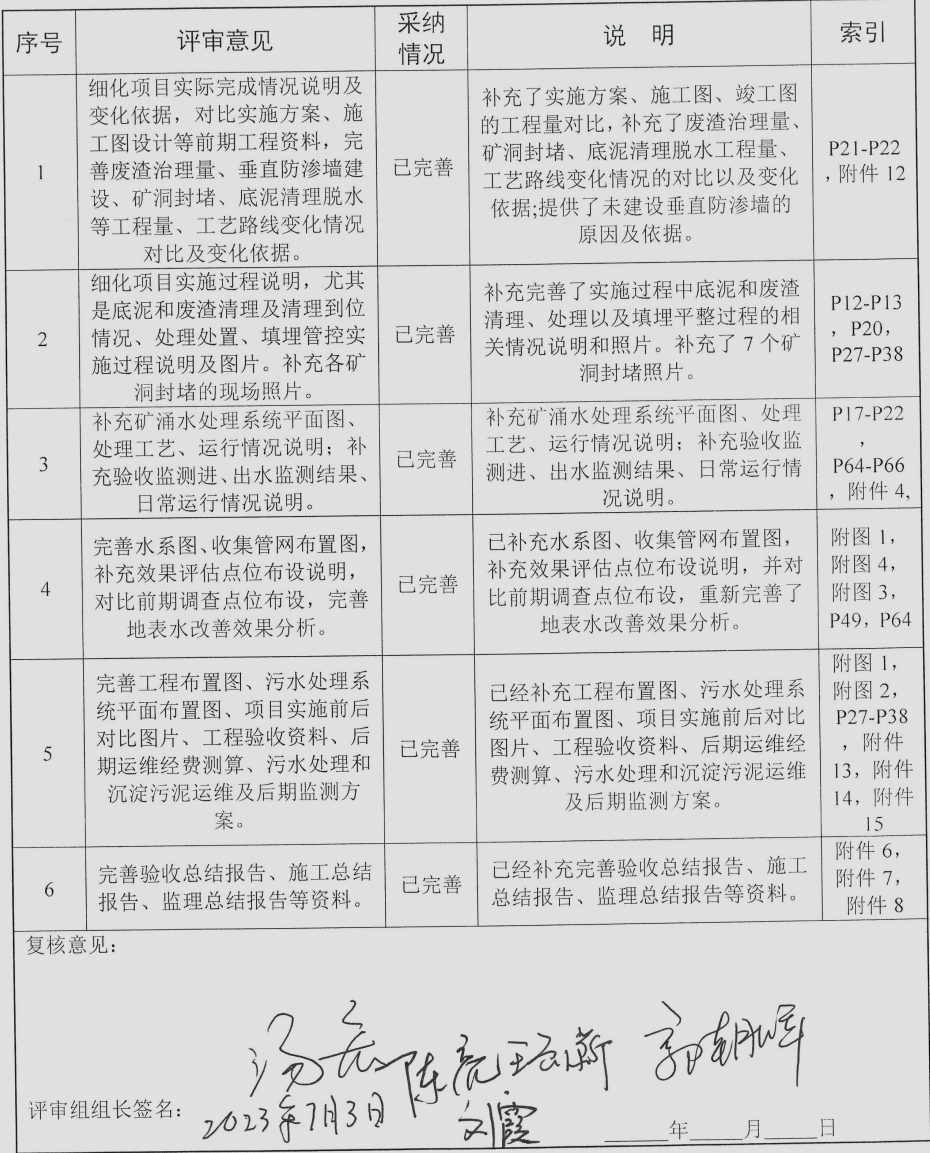 序号
评审意见
采纳
情况
说 明
索引
1
细化项目实际完成情况说明及
变化依据，对比实施方案、施
工图设计等前期工程资料，完
善废渣治理量、垂直防渗墙建
设、矿洞封堵、底泥清理脱水
等工程量、工艺路线变化情况
对比及变化依据。
已完善
补充了实施方案、施工图、竣工图
的工程量对比，补充了废渣治理量、
矿洞封堵、底泥清理脱水工程量、
工艺路线变化情况的对比以及变化
依据;提供了未建设垂直防渗墙的
原因及依据。
P21-P22
，附件 12
2
细化项目实施过程说明，尤其
是底泥和废渣清理及清理到位
情况、处理处置、填埋管控实
施过程说明及图片。补充各矿
洞封堵的现场照片。
已完善
补充完善了实施过程中底泥和废渣
清理、处理以及填埋平整过程的相
关情况说明和照片。补充了 7 个矿
洞封堵照片。
P12-P13
，P20，
P27-P38
3
补充矿涌水处理系统平面图、
处理工艺、运行情况说明；补
充验收监测进、出水监测结果、
日常运行情况说明。
已完善
补充矿涌水处理系统平面图、处理
工艺、运行情况说明；补充验收监
测进、出水监测结果、日常运行情
况说明。
P17-P22
，
P64-P66
，附件 4,
4
完善水系图、收集管网布置图，
补充效果评估点位布设说明，
对比前期调查点位布设，完善
地表水改善效果分析。
已完善
已补充水系图、收集管网布置图，
补充效果评估点位布设说明，并对
比前期调查点位布设，重新完善了
地表水改善效果分析。
附图 1，
附图 4，
附图 3，
P49，P64
5
完善工程布置图、污水处理系
统平面布置图、项目实施前后
对比图片、工程验收资料、后
期运维经费测算、污水处理和
沉淀污泥运维及后期监测方
案。
已完善
已经补充工程布置图、污水处理系
统平面布置图、项目实施前后对比
图片、工程验收资料、后期运维经
费测算、污水处理和沉淀污泥运维
及后期监测方案。
附图 1，
附图 2，
P27-P38
，附件
13，附件
14，附件
15
6
完善验收总结报告、施工总结
报告、监理总结报告等资料。
已完善
已经补充完善验收总结报告、施工
总结报告、监理总结报告等资料。
附件 6，
附件 7，
附件 8
复核意见：
陈亮
评审组组长签名：
2023年7月3日
刘霞
年 月 日